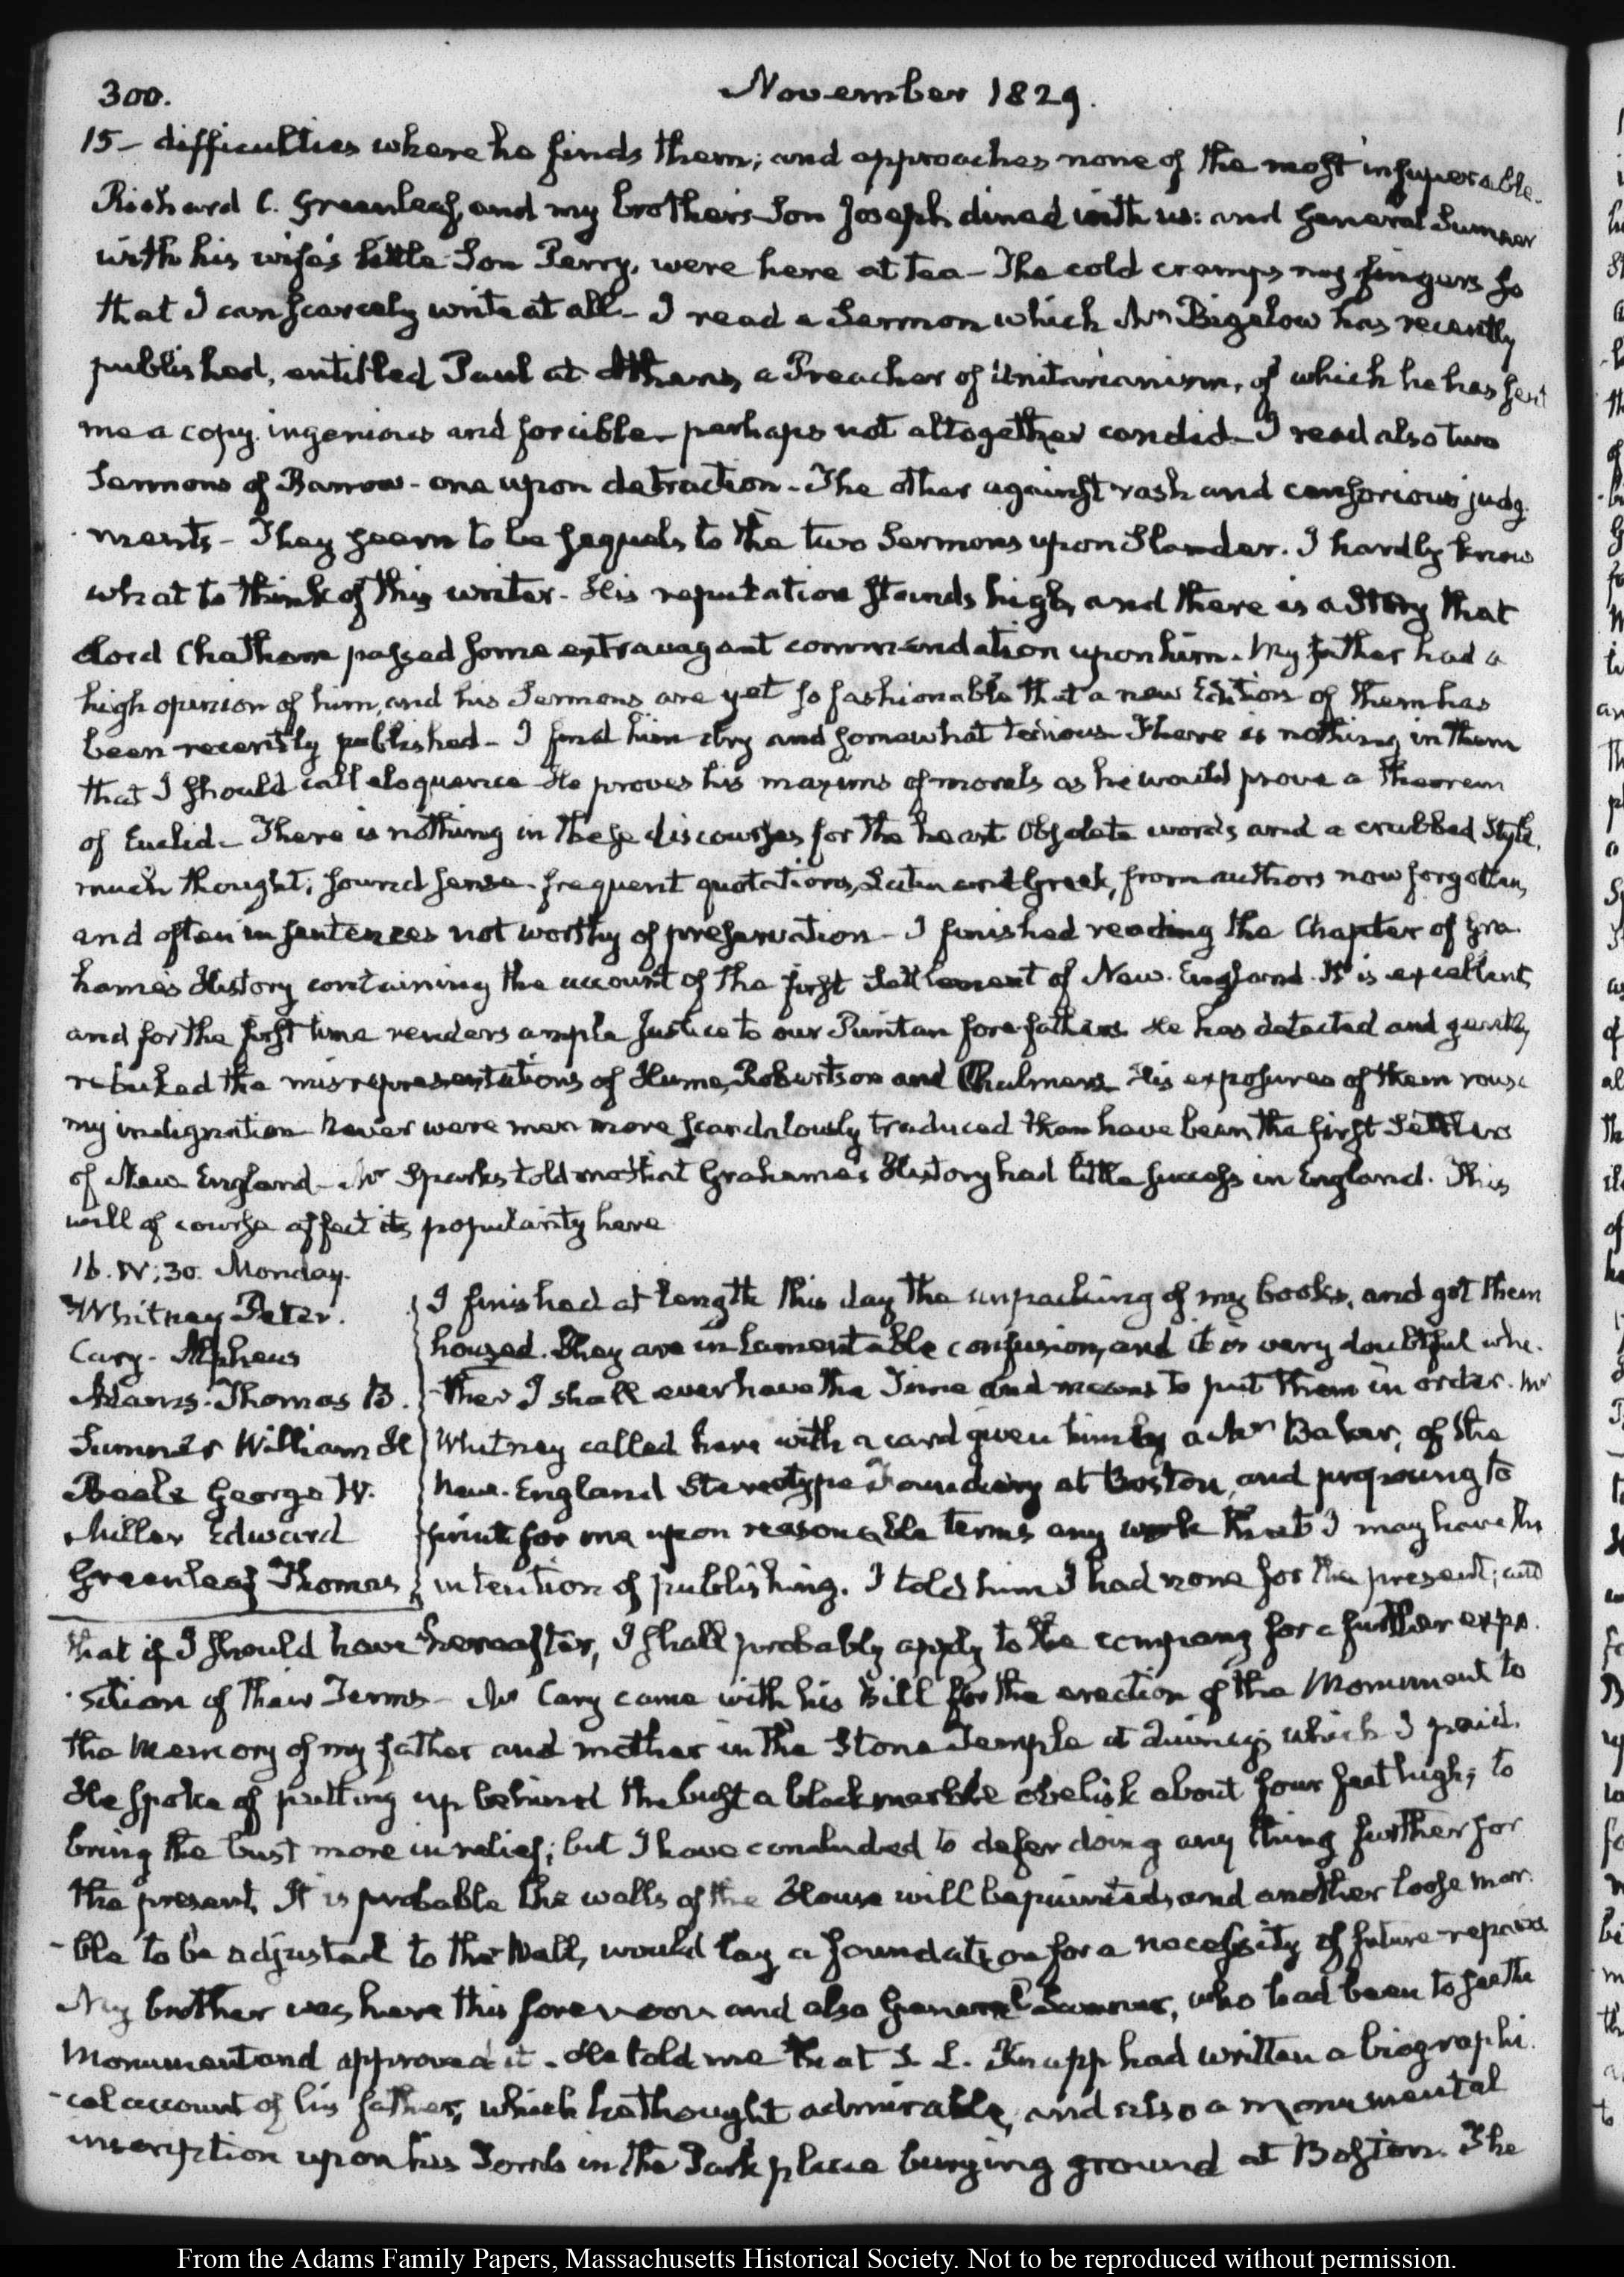 300.
November 1829.
15- difficulties where he finds them; and approaches none of the most insuperable.
Richard C. Greenleaf, and my brother's Son Joseph dined with us: and General Sumner
with his wife's little Son Perry, were here at tea- The cold cramps my fingers so
that I can scarcely write at all- I read a Sermon which Mr Bigelow has recently
published, entitled Paul at Athens, a Preacher of Unitarianism, of which he has sent
me a copy. ingenious and forcible- perhaps not altogether candid- I read also two
Sermons of Barrow- one upon detraction- The other against rash and censorious judg-
ments- They seem to be sequels to the two Sermons upon Slander. I hardly know
what to think of this writer- His reputation stands high, and there is a Story that
Lord Chatham passed some extravagant commendation upon him. My father had a
high opinion of him, and his Sermons are yet so fashionable that a new Edition of them has
been recently published- I find him dry and somewhat tedious- There is nothing in them
that I should call eloquence He proves his maxims of morals as he would prove a Theorem
of Euclid- There is nothing in these discourses for the heart Obsolete words and a crabbed Style,
much thought; sound sense- frequent quotations, Latin and Greek, from authors now forgotten,
and often in sentences not worthy of preservation- I finished reading the Chapter of Gra-
hame's History containing the account of the first Settlement of New-England. It is excellent,
and for the first time renders ample Justice to our Puritan forefathers He has detected and gently
rebuked the misrepresentations of Hume, Robertson and Chalmers- His exposures of them rouse
my indignation- Never were men more scandalously traduced than have been the first Settlers
of New England- Mr Sparks told me that Grahame's History had little success in England. This
will of course affect its popularity here
16. IV:30. Monday.
Whitney Peter.
Cary- Alpheus
Adams- Thomas B.
Sumner William H
Beale George W.
Miller Edward
Greenleaf Thomas
I finished at length this day the unpacking of my books, and got them
housed. They are in lamentable confusion, and it is very doubtful whe-
ther I shall ever have the Time and means to put them in order. Mr
Whitney called here with a card given him by a Mr Baker, of the
New-England Stereotype Foundery at Boston, and proposing to
print for me upon reasonable terms any work that I may have the
intention of publishing. I told him I had none for the present; and
that if I should have hereafter, I shall probably apply to the company for a further expo-
sition of their Terms- Mr Cary came with his Bill for the erection of the Monument to
the Memory of my father and mother in the Stone Temple at Quincy; which I paid.
He spoke of putting up behind the bust a black marble obelisk about four feet high; to
bring the bust more in relief; but I have concluded to defer doing any thing further for
the present. It is probable the walls of the House will be painted, and another loose mar-
ble to be adjusted to the Wall, would lay a foundation for a necessity of future repairs
My brother was here this forenoon and also General Sumner, who had been to see the
Monument and approved it- He told me that S. L. Knapp had written a biographi-
cal account of his father, which he thought admirable, and also a monumental
inscription upon his Tomb in the Park place burying ground at Boston. The
From the Adams Family Papers, Massachusetts Historical Society. Not to be reproduced without permission.